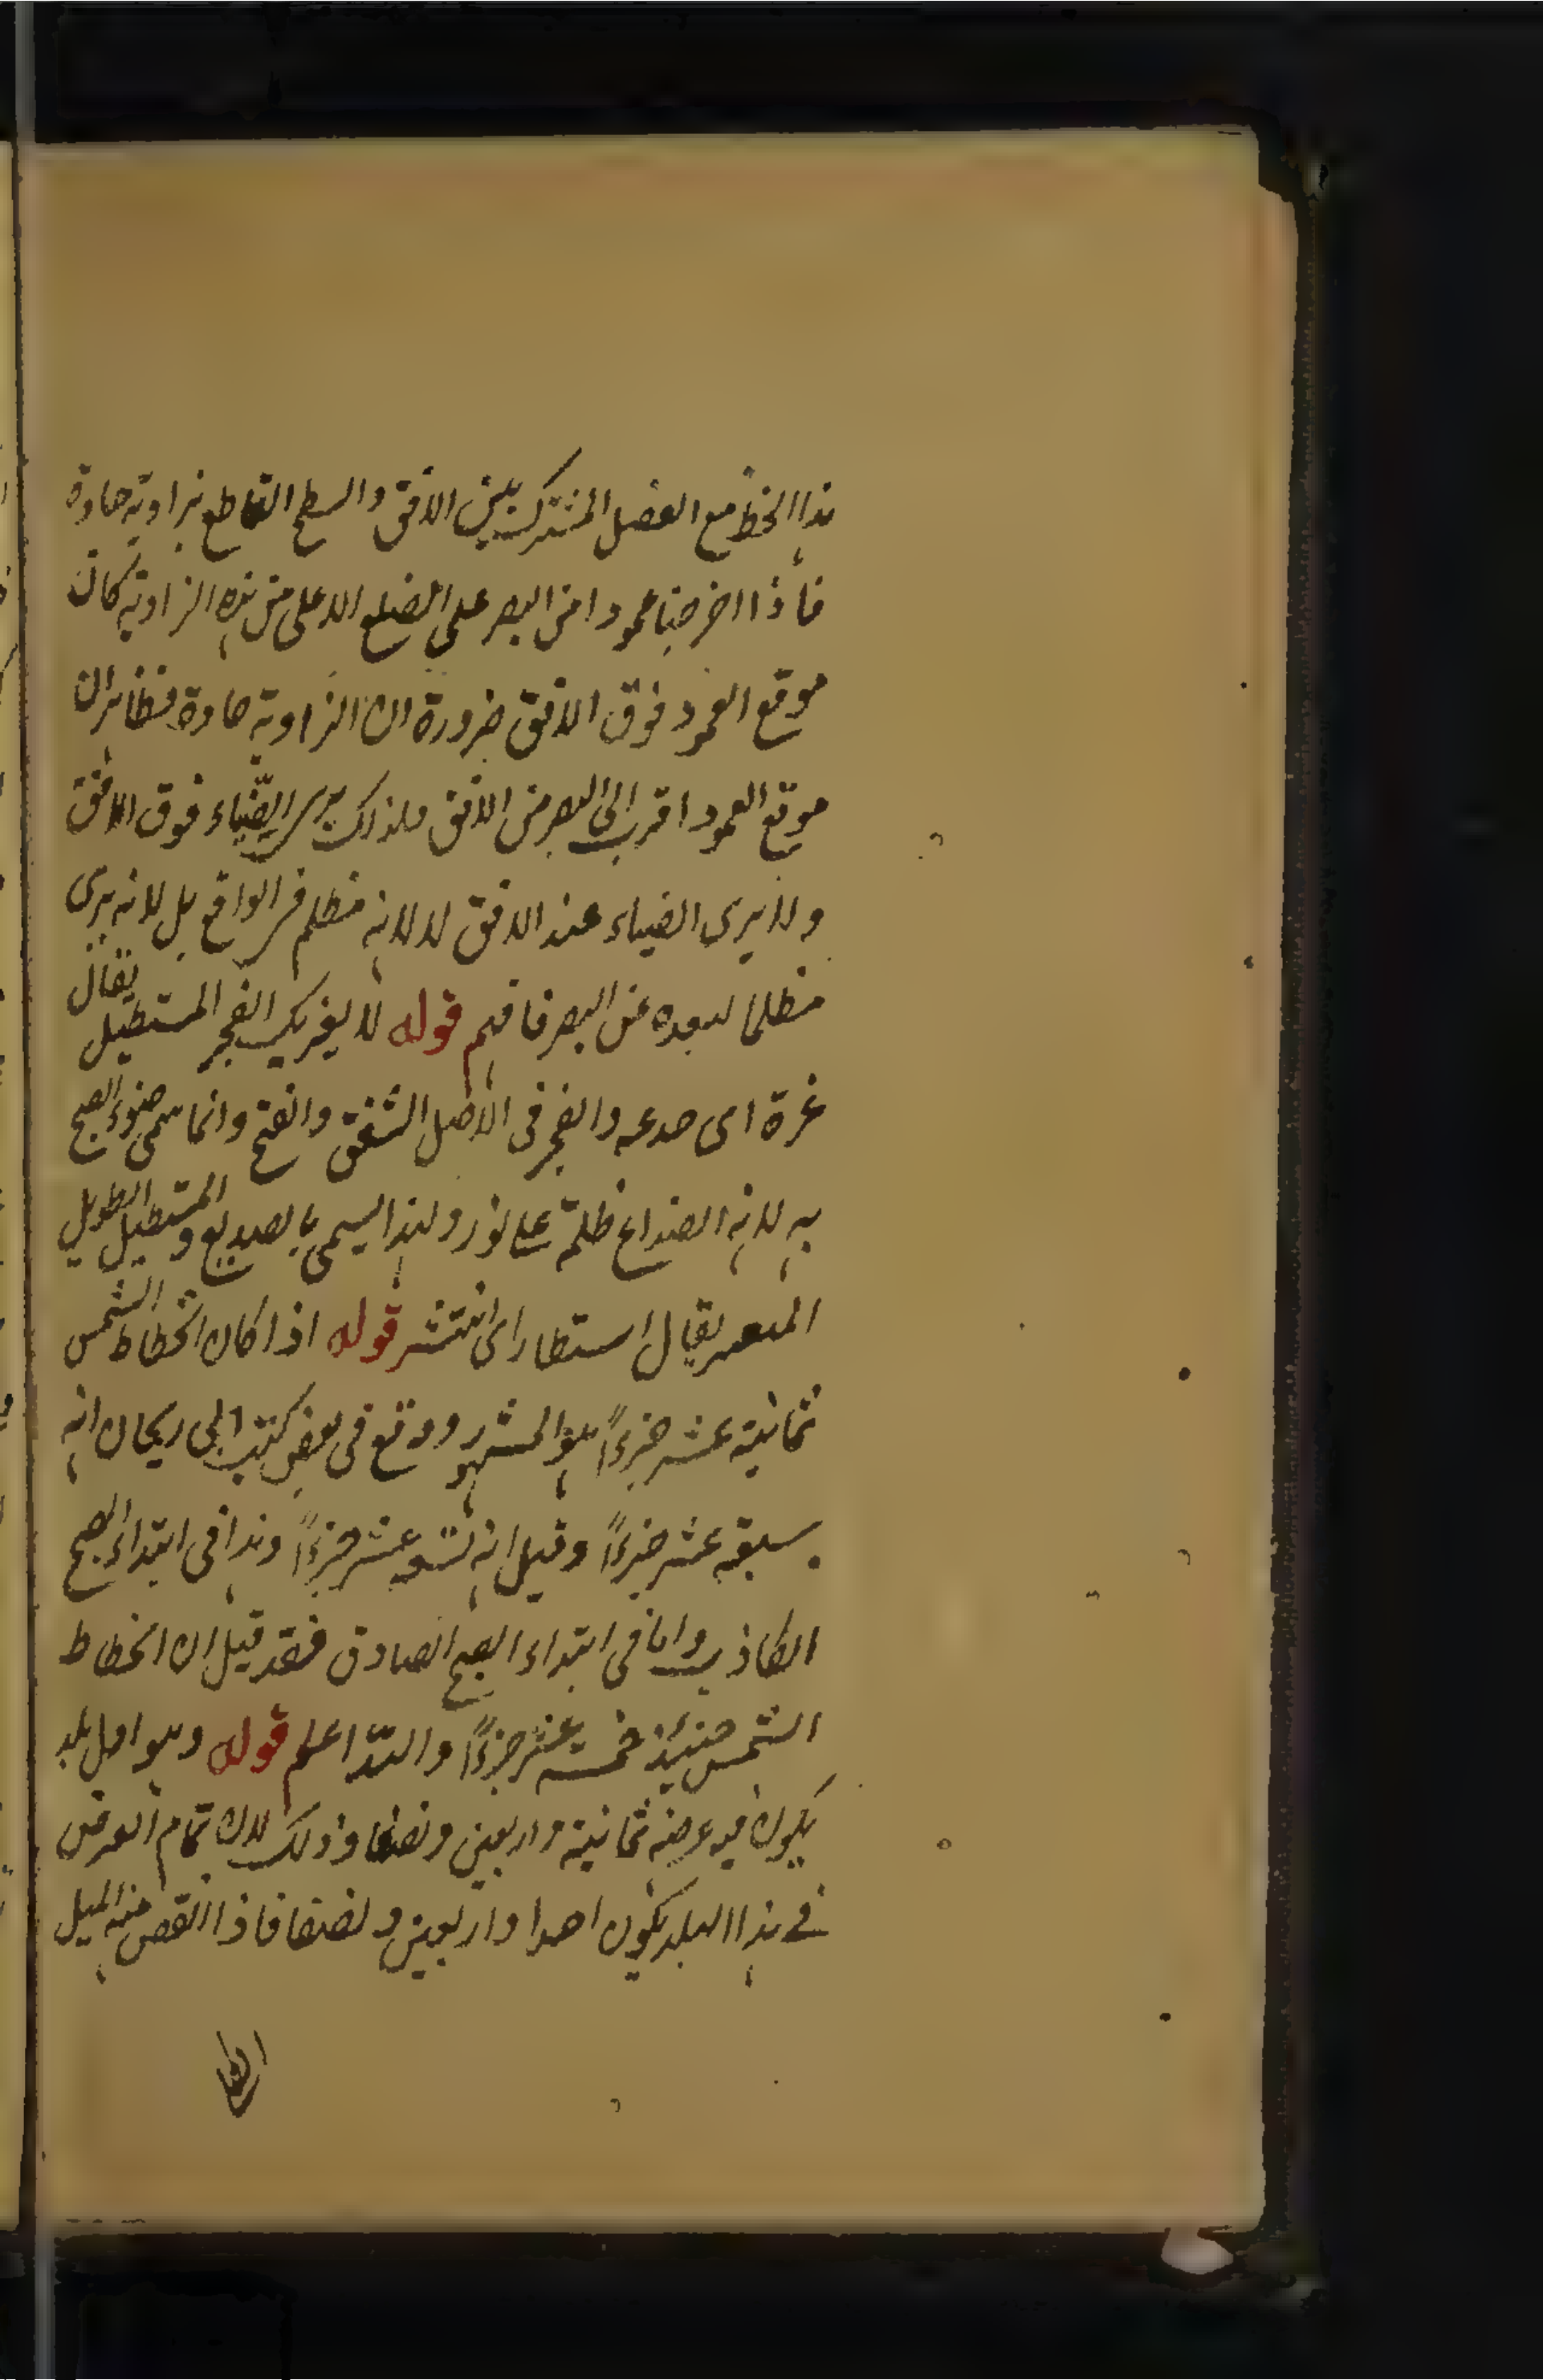 هذا الخط مع الفصل المشترك بين الافق والسطح القاطع بزاوية حادة
فأذا اخرجنا عمودا من البصر على الضلع الاعلى من هذه الزاوية كان
موقع العمود فوق الافق ضرورة ان الزاوية حادة فظاهر ان
موقع العمود اقرب الى البصر من الافق فلذلك يرى الضّياء فوق الافق
ولا يرى الضياء عند الافق لا لانه مظلم فى الواقع بل لانه يرى
مظلما لبعده عن البصر فافهم قوله لا يغرنكم الفجر المستطيل يقال
غرة اى خدعه والفجر فى الاصل الشقق والفتح وانما سمى ضوء الصبح
به لانه انصداع ظلمة عن نور ولهذا يسمى بالصديع والمستطيل الطويل
يقال استطار اى انتشر قوله اذا كان انحطاط الشمس
ثمانية عشر جزءاً هو المشهور ووقع فى بعض كتب ابى ريحان انه
سبعة عشر جزءاً وقيل انه تسعة عشر جزءاً وهذا فى ابتداء الصبح
الكاذب واما فى ابتداء الصبح الصادق فقد قيل ان انحطاط
الشمس حينئذ خمسة عشر جزءاً والله اعلم قوله وهو اول بلد
يكون فيه عرضه ثمانية واربعين ونصفا وذلك لان تمام العرض
فى هذا البلد يكون احدا واربعين ونصفا فاذا انقص منه الميل